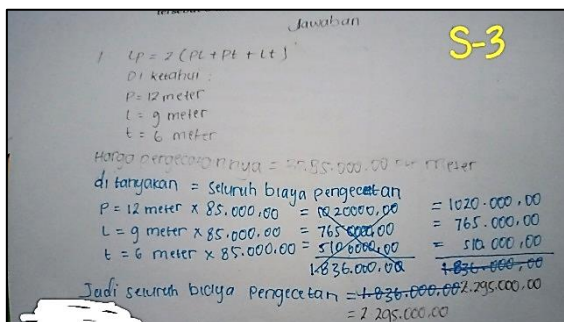 Jawaban
S-3
1 Lp = 2 (PL + Pt + Lt)
Di ketahui :
P = 12 meter
L = 9 meter
t = 6 meter
Harga pengecatannya = 85.000,00 meter
di tanyakan = seluruh biaya pengecatan
P = 12 meter x 85.000,00 = 1020000,00 = 1020.000,00
L = 9 meter x 85.000,00 = 765 000,00 = 765.000,00
t = 6 meter x 85.000,00 = 510 000,00 = 510 000,00
1.836.000,00 1.836.000,00
Jadi seluruh biaya pengecetan = 1.836.000,00 2.295.000,00
= 2.295.000,00